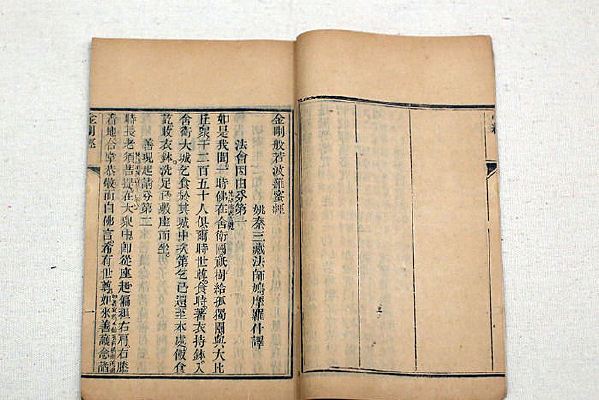 金剛般若波羅蜜經
姚秦三藏法師鳩摩羅什譯
法會因由分第一
如是我聞一時佛在舍衛國祇樹給孤獨園與大比
丘衆千二百五十人俱爾時世尊食時著衣持鉢入
舍衛大城乞食於其城中次第乞已還至本處飯食
訖收衣鉢洗足已敷座而坐
善現起請分第二
時長老須菩提在大衆中卽從座起偏袒右肩右膝
着地合掌恭敬而白佛言希有世尊如來善護念諸
金剛經